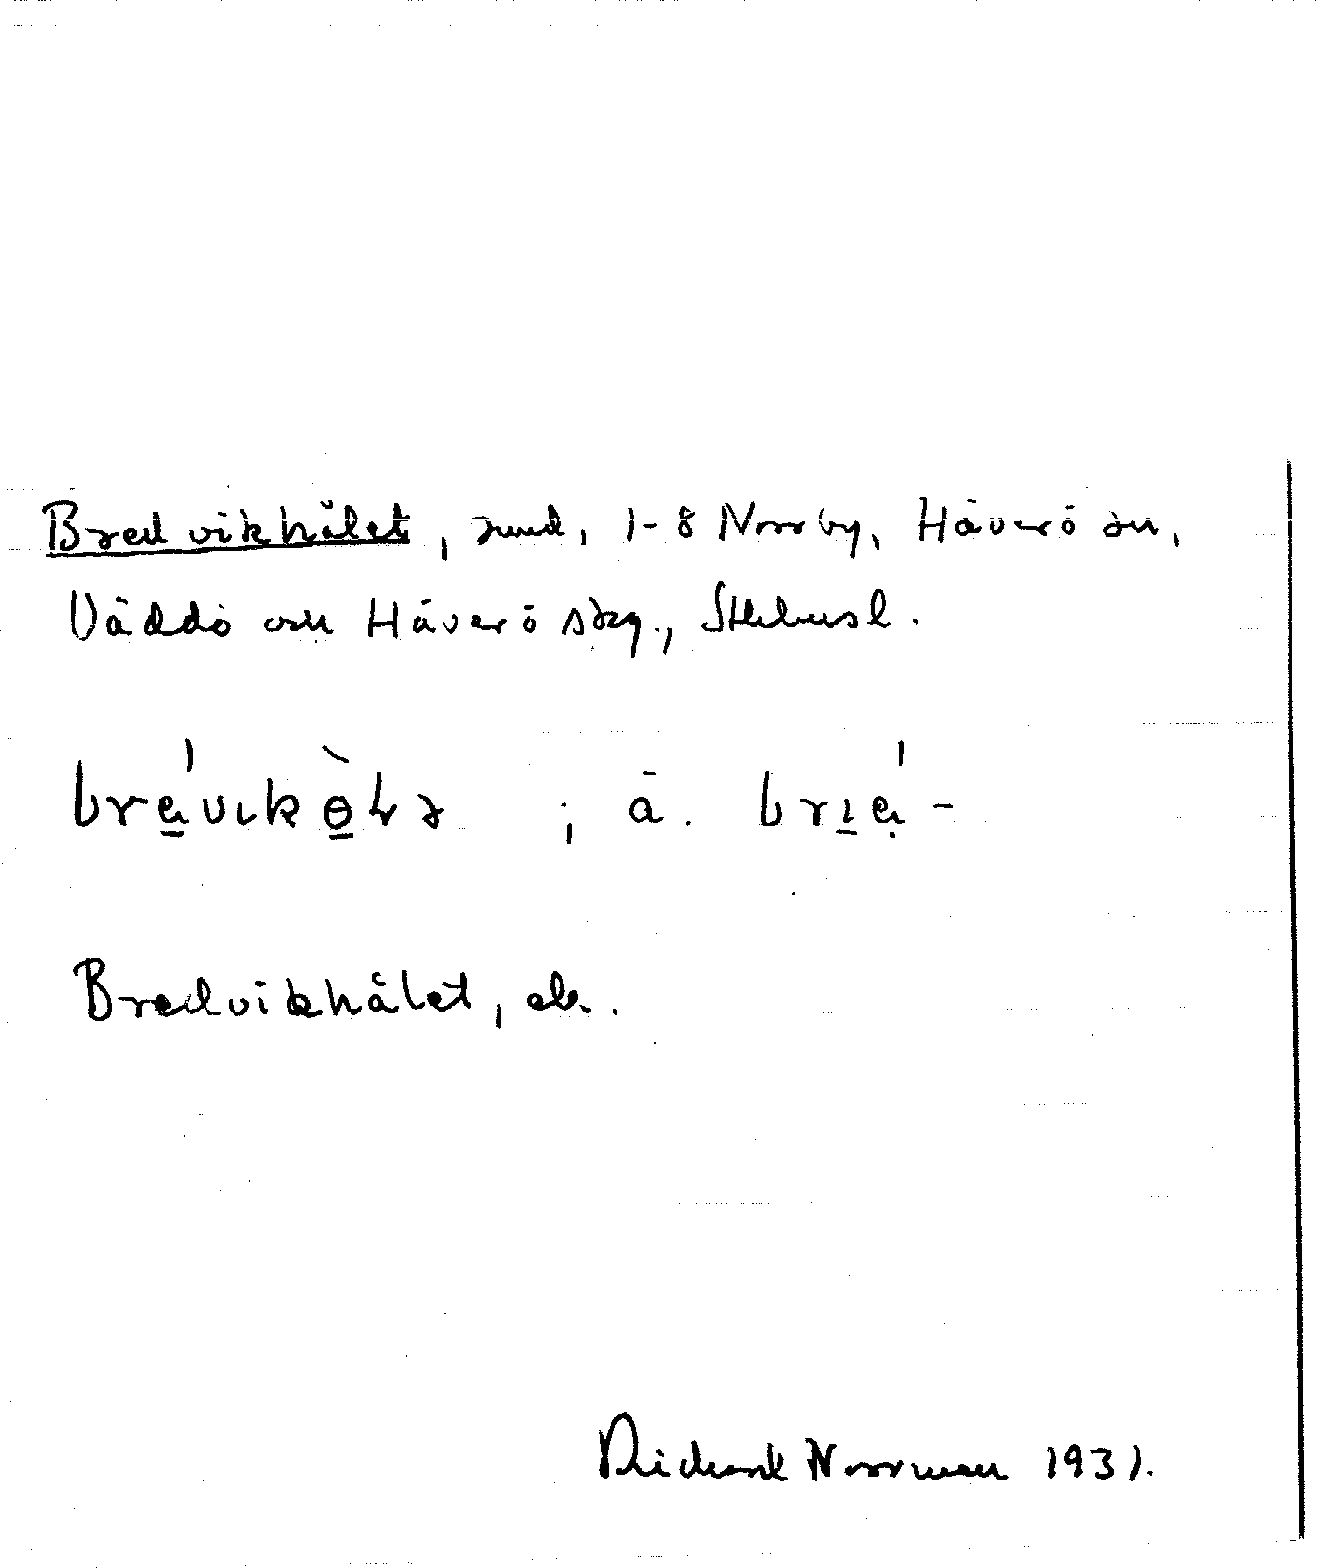 Bredvikhålet, sund, 1-8 Norrby, Häverö sn,
Väddö och Häverö skg., Sthlmsl.
bre̲ʹvɩkɵ̲̀ɬə ; ä. brɩ̲ẹʹ-
Bredvikhålet, ek.
Richard Norrman 1931.